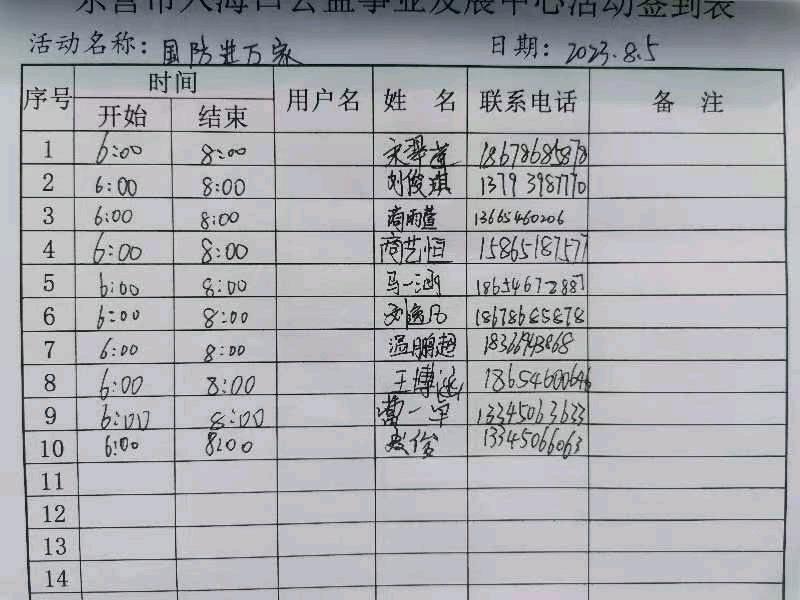 东营市入海口公益事业发展中心活动签到表
活动名称：国防进万家 日期：2023.8.5
序号 时间 用户名 姓名 联系电话 备注
开始 结束
1 6:00 8:00 18678685878
2 6:00 8:00 刘俊琪 13793987770
3 6:00 8:00 商雨萱 13665460206
4 6:00 8:00 商艺恒 15865187577
5 6:00 8:00 马一涵 18654672887
6 6:00 8:00 18678685878
7 6:00 8:00 温鹏超 18366943868
8 6:00 8:00 王博涵 18654600646
9 6:00 8:00 13345063633
10 6:00 8:00 13345066063
11
12
13
14